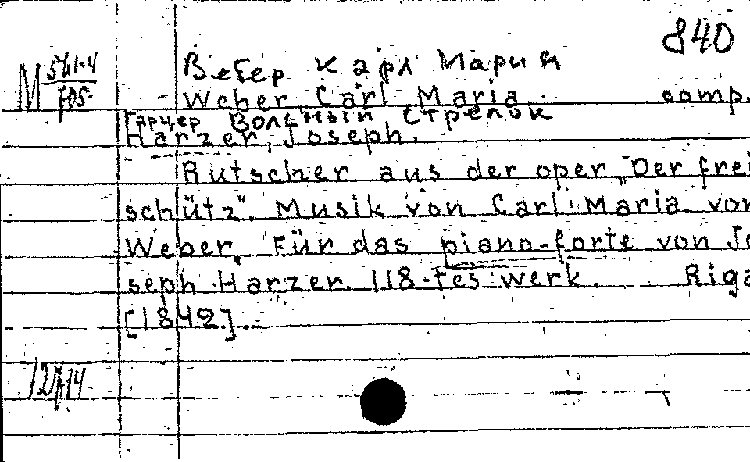 840
М 561-4
Вебер Карл Мария
Weber, Carl Maria comp.
Гарцер Вольный стрелок
Harzer, Joseph.
Rutscher aus der oper „Der frei
schütz". Musik von Carl Maria von
Weber. Für das piano-forte von Jo
seph Harzer. 118-tes werk. Riga
[1842].